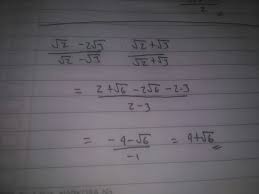 2
√2 - 2√3 / √2 - √3   √2 + √3 / √2 + √3
= 2 + √6 - 2√6 - 2·3 / 2 - 3
= -4 - √6 / -1 = 4 + √6